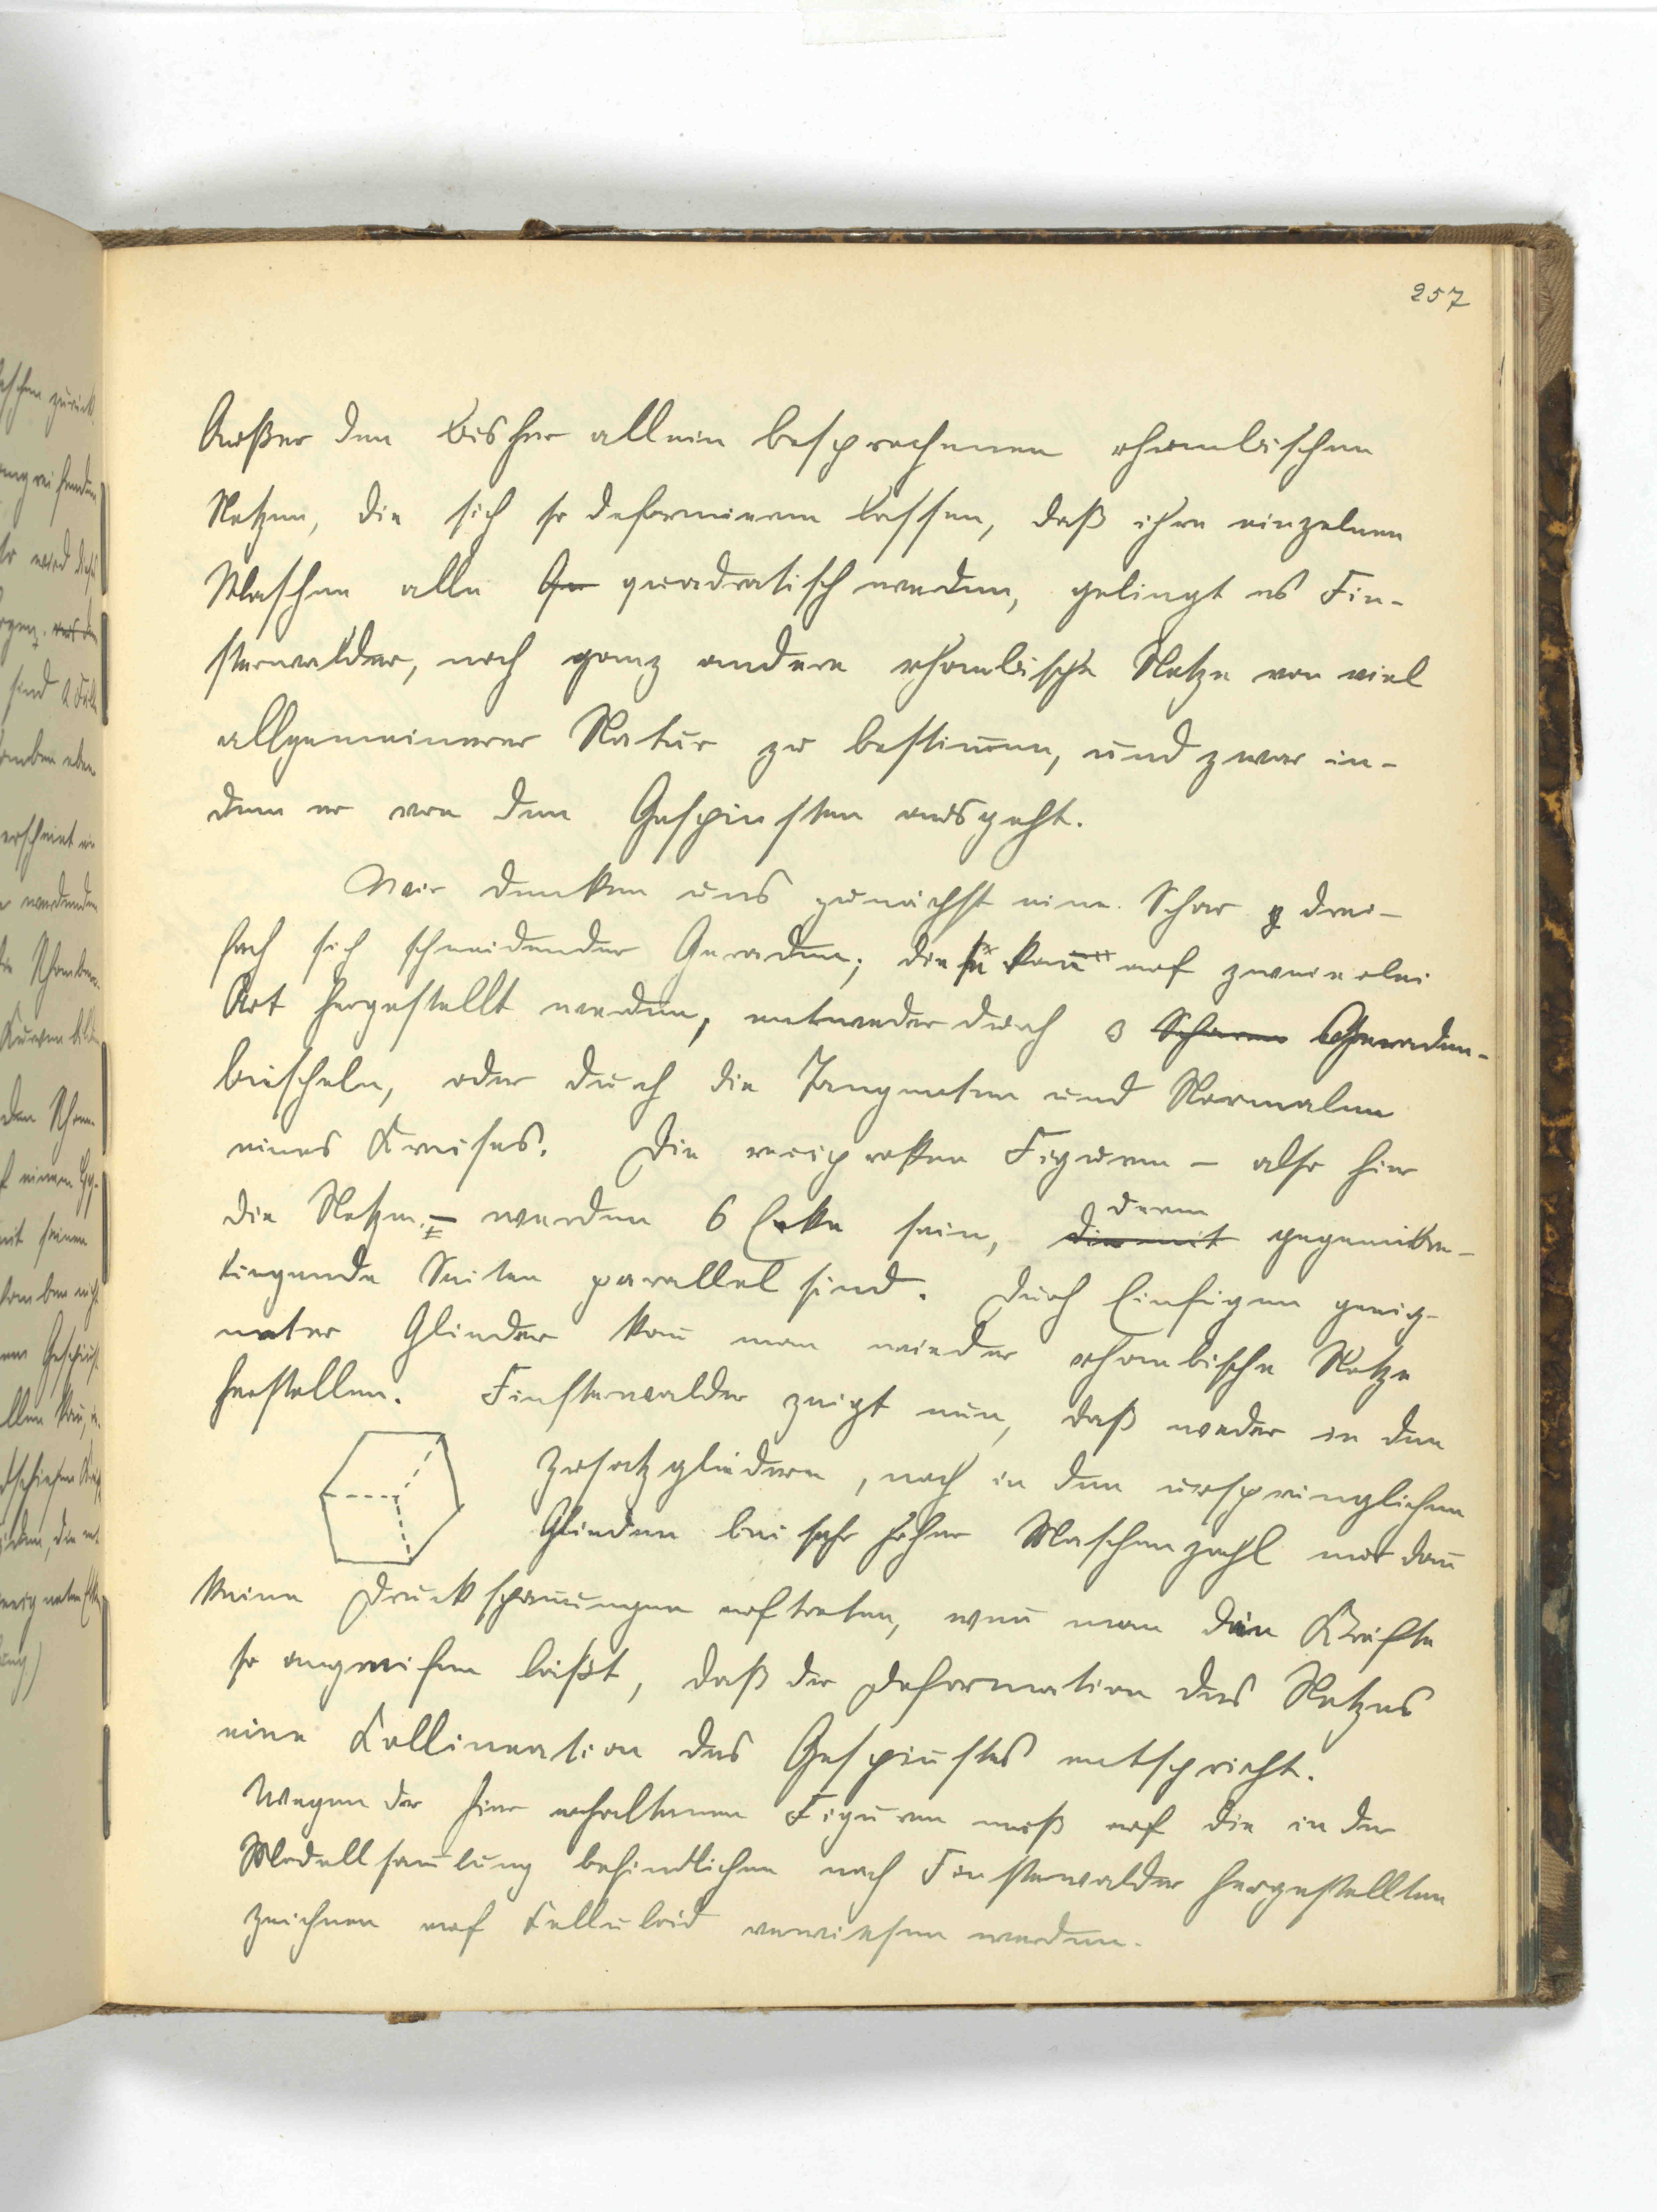 257
Außer den bisher allein besprochenen rhombischen
Netzen, die sich so deformieren lassen, daß ihre einzelnen
Maschen alle quadratisch werden, gelingt es Fin-
sterwalder, noch ganz andere rhombische Netze von viel
allgemeinerer Natur zu bestim̅en, und zwar in-
dem er von den Gespinsten ausgeht.
Wir denken uns zunächst eine Schar drei-
fach sich schneidender Geraden; die kan̅ auf zweierlei
Art hergestellt werden, entweder durch 3 Scharen Geraden-
büscheln, oder durch die Tangenten und Normalen
eines Kreises. Die reciproken Figuren – also hier
die Netze – werden 6 Ecke sein, die mit deren gegenüber-
liegende Seiten parallel sind. Durch Einfügen geeig-
neter Glieder kan̅ man wieder rhombische Netze
herstellen. Finsterwalder zeigt nun, daß weder in den
Zusatzgliedern, noch in den ursprünglichen
Gliedern bei sehr hoher Maschenzahl nur dan̅
keine Druckspan̅ungen auftreten, wen̅ man die Kräfte
so angreifen läßt, daß der Deformation des Netzes
eine Kollineation des Gespinstes entspricht.
Wegen der hier erhaltenen Figuren muß auf die in der
Modellsam̅lung befindlichen nach Finsterwalder hergestellten
Zeichnen auf Celluloid verwiesen werden.